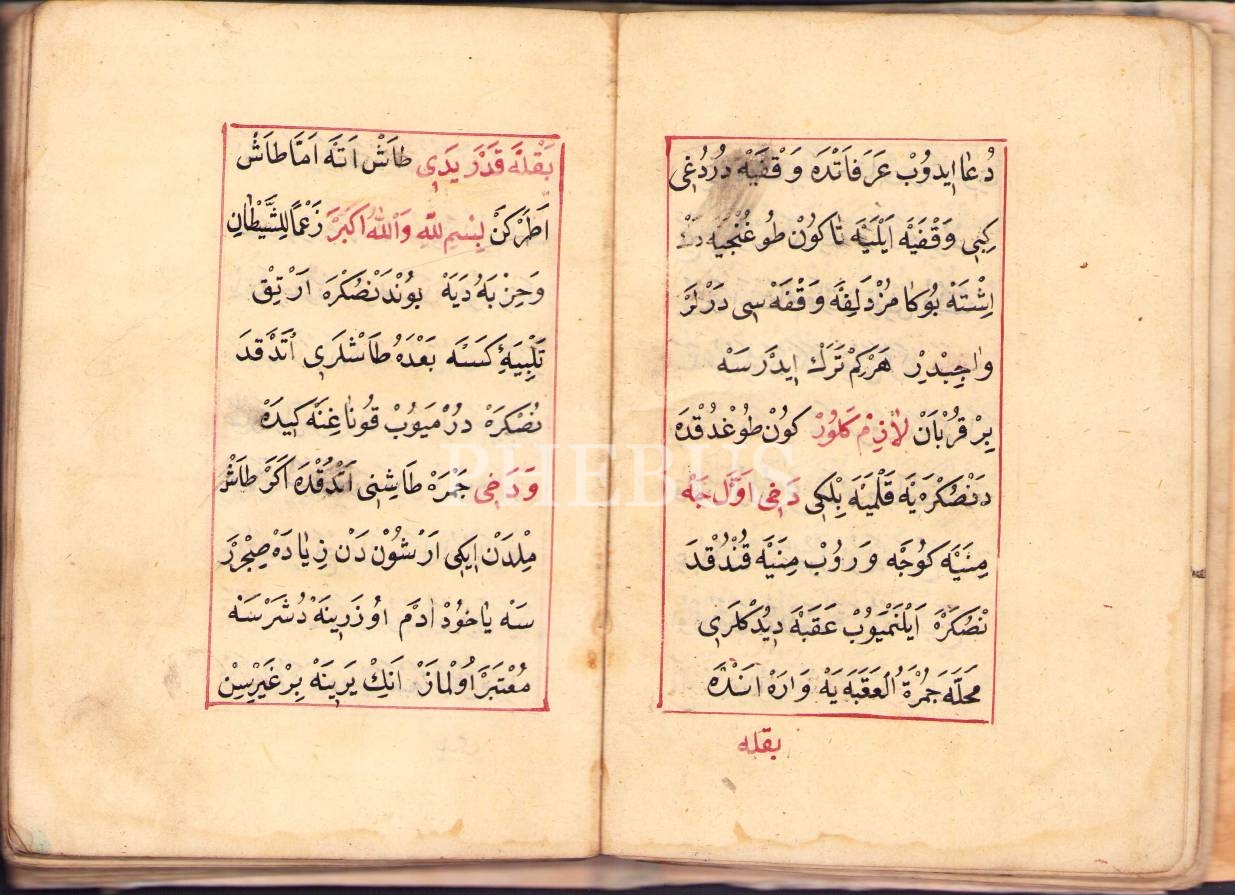 دُعَا ايدُوبْ عَرَفَاتْدَه وَقْفَيْه دُرْدُغِى
كِبِى وَقْفَيْه اَيْلَيَه تَا كُونْ طُوغُنْجَيَه دَكْ
اِشْتَه بُوكَا مُزْدَلِفَه وَقْفَه سِى دَرْلَرْ
وَاجِبْدِرْ هَرْكِمْ تَرْكْ ايدَرْسَه
بِرْ قُرْبَانْ لَازِمْ كَلُورْ كُونْ طُوغْدُقْدَه
دَنْصُكْرَه يَه قَلْمَيَه بِلْكِى دَخِى اَوَّلْ جَهْ
مِنَيَه كُوجَه وَرُوبْ مِنَيَه قُنْدُقْدَ
نْصُكْرَه اَيْلَنْمَيُوبْ عَقَبَه دِيدُكْلَرِى
مَحَلَّه جَمْرَةُ الْعَقَبَه يَه وَارَه اَنْدَه
بقله
بَقْلَه قَدَرْ يَدِى طَاشْ اَتَه اَمَّا طَاشْ
اَطَرْكَنْ بِسْمِ للّٰهِ وَاللّٰهُ اَكْبَرْ زَعْمًا لِلشَّيْطَانِ
وَحِزْبَهُ دَيَه بُونْدَنْصُكْرَه اَرْتِقْ
تَلْبِيَهِٔ كَسَه بَعْدَهُ طَاشْلَرِى اَتْدُقْدَ
نْصُكْرَه دُرْمَيُوبْ قُونَاغِنَه كِيدَه
وَدَخِى جَمْرَه طَاشِنِى اَتْدُقْدَه اَكَرْ طَاشْ
مِلْدَنْ اِيكِى اَرْشُونْ دَنْ زِيَادَه صِجْرَرْ
سَه يَاخُودْ ادَمْ اُوزَرِينَه دُشَرْسَه
مُعْتَبَرْ اُولْمَازْ اَنِكْ يَرِينَه بِرْ غَيْرِيسِنْ
PHEBUS